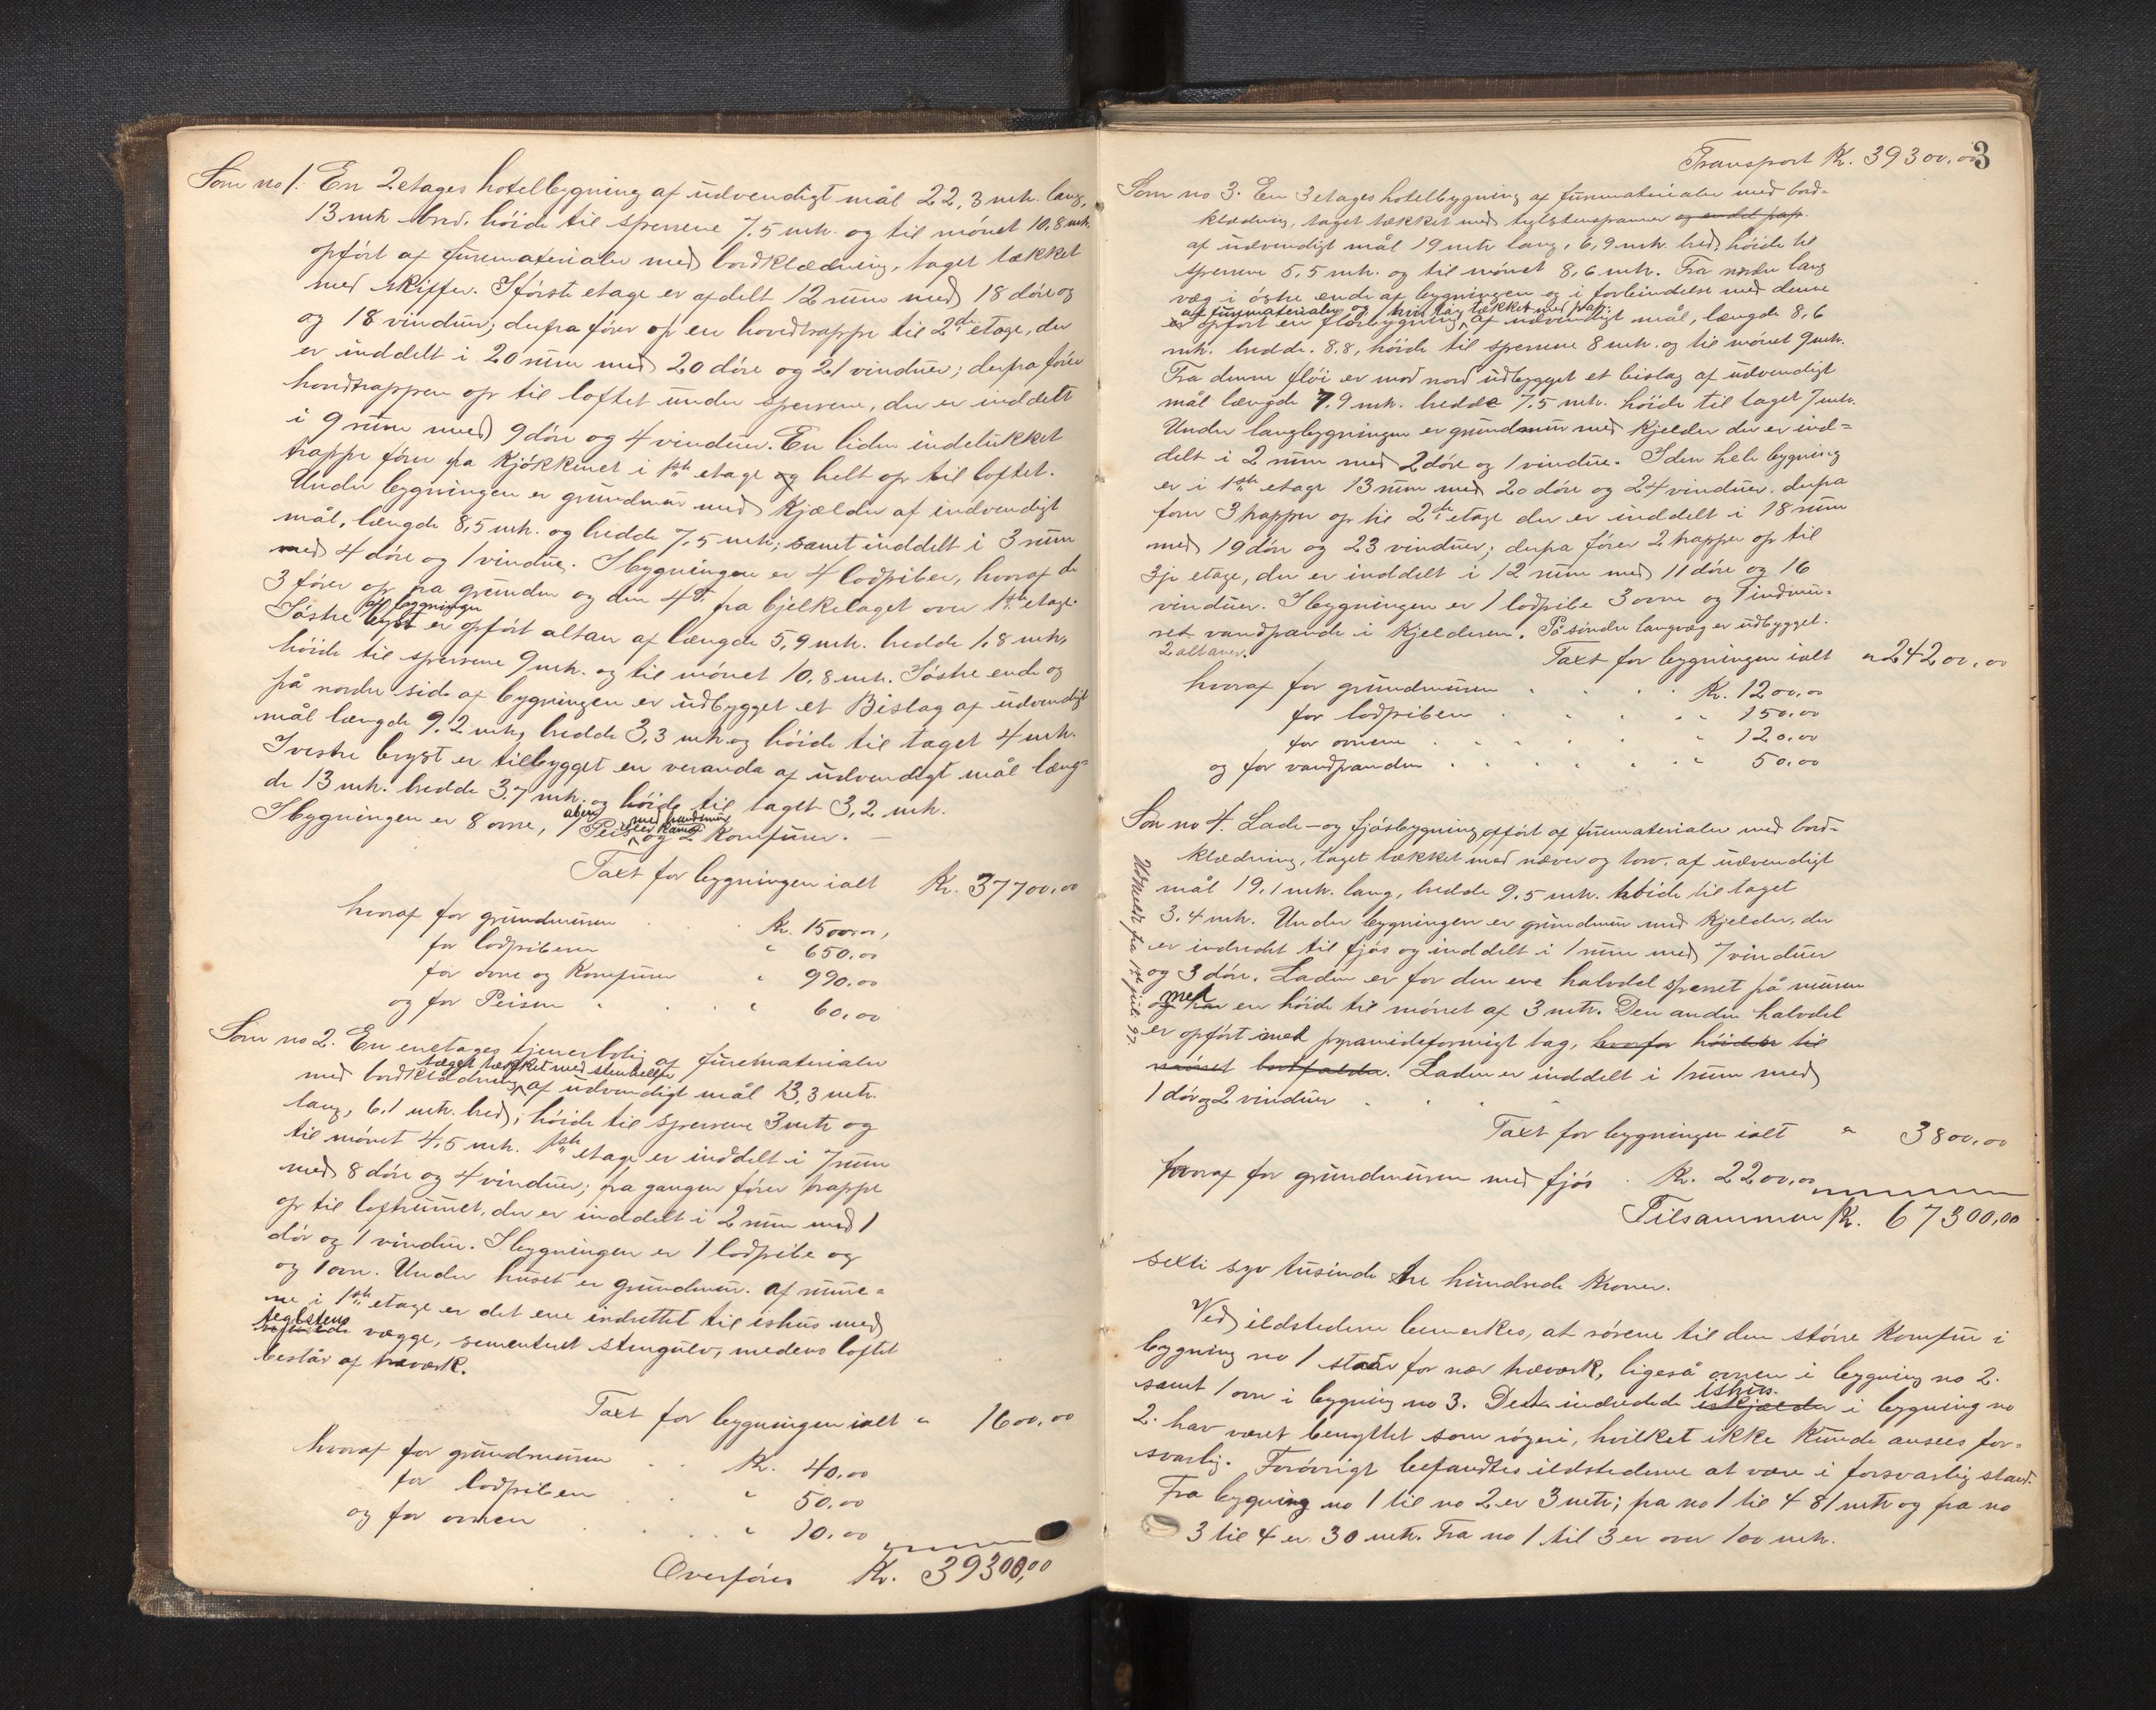 Som no 1. En 2 etages hotelbygning af udvendigt mål 22,3 mtr. lang,
13 mtr. bred, høide til sperrene 7.5 mtr. og til mønet 10,8 mtr.
opført af furumaterialer med bordklædning, taget tækket
med skiffer. I første etage er afdelt 12 rum med 18 døre og
og 18 vinduer; derfra fører op en hovedtrappe til 2den etage, der
er inddelt i 20 rum med 20 døre og 21 vinduer; derfra fører
hovedtrappen op til loftet under sperrene, der er inddelt
i 9 rum med 9 døre og 4 vinduer. En liden indelukket
trappe fører fra kjøkkenet i 1ste etage og helt op til loftet.
Under bygningen er grundmur med kjælder af indvendigt
mål, længde 8,5 mtr. og bredde 7.5 mtr; samt inddelt i 3 rum
med 4 døre og 1 vindue. I bygningen er 4 lodpiber, hvoraf de
3 fører op fra grunden og den 4de fra bjelkelaget over 1ste etage.
af bygningen
I østre bryst er opført altan af længde 5,9 mtr. bredde 1,8 mtr,
høide til sperrene 9 mtr. og til mønet 10,8 mtr. I østre ende og
på nordre side af bygningen er udbygget et Bislag af udvendigt
mål længde 9.2 mtr, bredde 3,3 mtr. og høide til taget 4 mtr.
I vestre bryst er tilbygget en veranda af udvendigt mål læng-
de 13 mtr. bredde 3,7 mtr. og høide til taget 3,2 mtr.
åben med grundmur
I bygningen er 8 ovne, 1 Peis og 2 Komfurer. —
Taxt for bygningen ialt Kr. 37700,00
hvoraf for grundmuren Kr. 1500,00,
for lodpiberne " 650.00
for ovne og Komfurer " 990.00
og for Peisen " 60,00
Som no 2. En enetages tjenerbolig af furematerialer
taget tækket med stenheller
med bordklædning af udvendigt mål 13,3 mtr.
lang, 6.1 mtr. bred; høide til sperrene 3 mtr og
til mønet 4,5 mtr. 1ste etage er inddelt i 7 rum
med 8 døre og 4 vinduer; fra gangen fører trappe
op til loftrummet, der er inddelt i 2 rum med 1
dør og 1 vindue. I bygningen er 1 lodpibe og
og 1 ovn. Under huset er grundmur. Af rumme-
ne i 1ste etage er det ene indrettet til ishus med
teglstens
vægge, sementeret stengulv, medens loftet
består af træværk.
Taxt for bygningen ialt " 1600,00
hvoraf for grundmuren Kr. 40,00
for lodpiben " 50,00
og for ovnen " 10,00
Overføres Kr. 39300,00
3
Transport Kr. 39300,00
Som no 3. En 3 etages hotelbygning af furumaterialer med bord-
klædning, taget tækket med teglstenspanner og en del pap.
af udvendigt mål 19 mtr lang, 6,9 mtr. bred, høide til
sperrene 5,5 mtr. og til mønet 8,6 mtr. Fra nordre lang
væg i østre ende af bygningen og i forbindelse med denne
af furumaterialer og hvis tag tækket med pap.
er opført en fløibygning af udvendigt mål, længde 8,6
mtr. bredde 8.8, høide til sperrene 8 mtr. og til mønet 9 mtr.
Fra denne fløi er mod nord udbygget et bislag af udvendigt
mål længde 7.9 mtr. bredde 7.5 mtr. høide til taget 7 mtr.
Under langbygningen er grundmur med Kjelder der er ind-
delt i 2 rum med 2 døre og 1 vindue. I den hele bygning
er i 1ste etage 13 rum med 20 døre og 24 vinduer. derfra
fører 3 trapper op til 2den etage der er inddelt i 18 rum
med 19 døre og 23 vinduer; derfra fører 2 trapper op til
3je etage, der er inddelt i 12 rum med 11 døre og 16
vinduer. I bygningen er 1 lodpibe 3 ovne og 1 indmu-
ret vandpande i Kjelderen. På søndre langvæg er udbygget.
2 altaner.
Taxt for bygningen ialt " 24200,00
hvoraf for grundmuren Kr. 1200,00
for lodpiben " 150.00
for ovnene " 120.00
og for vandpanden " 50.00
Som no 4. Lade- og fjøsbygning opført af furumaterialer med bord-
klædning, taget tækket med næver og torv. af udvendigt
mål 19,1 mtr. lang, bredde 9.5 mtr. høide til taget
3.4 mtr. Under bygningen er grundmur med Kjelder, der
er indredet til fjøs og inddelt i 1 rum med 7 vinduer
og 3 døre. Laden er for den ene halvdel sperret på muren
med
og har en høide til mønet af 3 mtr. Den anden halvdel
er opført med pyramideformigt tag, hvorfor høiden til
mønet bortfalder. Laden er inddelt i 1 rum med
1 dør og 2 vinduer
Udmeldt fra 1ste juli 97.
Taxt for bygningen ialt " 3800,00
hvoraf for grundmuren med fjøs Kr. 2200,00
Tilsammen Kr. 67300,00
sexti syv tusinde tre hundrede Kroner.
Ved ildstederne bemerkes, at rørene til den større Komfur i
bygning no 1 står for nær træværk, ligeså ovnen i bygning no 2.
samt 1 ovn i bygning no 3. Det indredede iskjælder i bygning no
ishus.
2. har været benyttet som røgeri, hvilket ikke kunde ansees for-
svarlig. Forøvrigt befandtes ildstederne at være i forsvarlig stand.
Fra bygning no 1 til no 2 er 3 mtr; fra no 1 til 4 81 mtr og fra no
3 til 4 er 30 mtr. Fra no 1 til 3 er over 100 mtr.